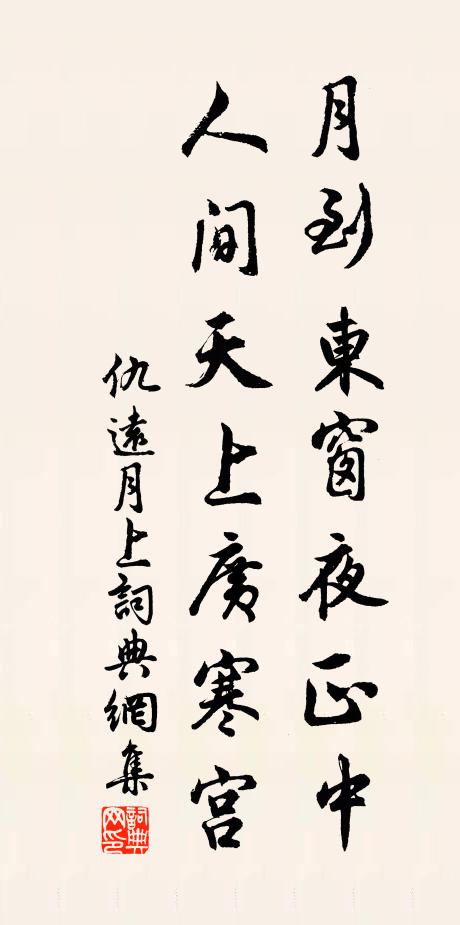 月到東窗夜正中
人间天上廣寒宮
仇遠月上詞典網集
詞典
网印